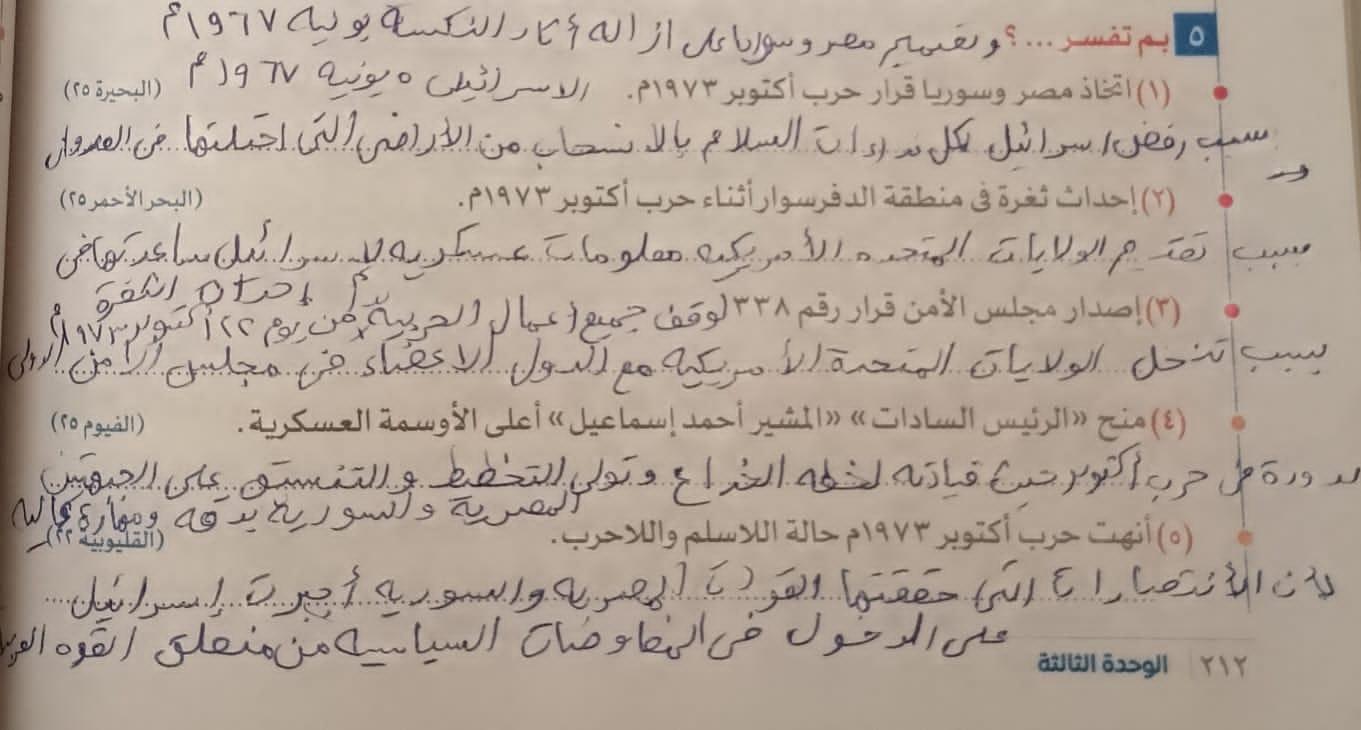 ٥ بم تفسر ...؟ وتصميم مصر وسوريا على إزالة أثار النكسة يونيه ١٩٦٧م
(١) اتخاذ مصر وسوريا قرار حرب أكتوبر ١٩٧٣م. (البحيرة ٢٥)
الاسرائيلى ٥ يونية ١٩٦٧م
سبب رفض اسرائيل لكل نداءات السلام بالانسحاب من الأراضى التى احتلتها فى العدوان
(٢) إحداث ثغرة فى منطقة الدفرسوار أثناء حرب أكتوبر ١٩٧٣م. (البحر الأحمر ٢٥)
بسبب تقديم الولايات المتحده الأمريكيه معلومات عسكريه لاسرائيل ساعدتها فى
احداث الثغرة
(٣) إصدار مجلس الأمن قرار رقم ٣٣٨ لوقف جميع اعمال الحربية من يوم ٢٢ أكتوبر ١٩٧٣م
بسبب تدخل الولايات المتحدة الأمريكيه مع الدول الاعضاء فى مجلس الأمن الدولى
(٤) منح «الرئيس السادات» «المشير أحمد إسماعيل» أعلى الأوسمة العسكرية. (الفيوم ٢٥)
لدورة فى حرب أكتوبر حيث قيادته لخطه الخداع وتولى التخطيط والتنسيق على الجبهتين
المصرية والسورية بدقه ومهارة عاليه
(٥) أنهت حرب أكتوبر ١٩٧٣م حالة اللاسلم واللاحرب. (القليوبية ٢٢)
لأن الأنتصارات التى حققتها القوات المصريه والسوريه أجبرت إسرائيل
على الدخول فى المفاوضات السياسيه من منطلق القوه
٢١٢ الوحدة الثالثة